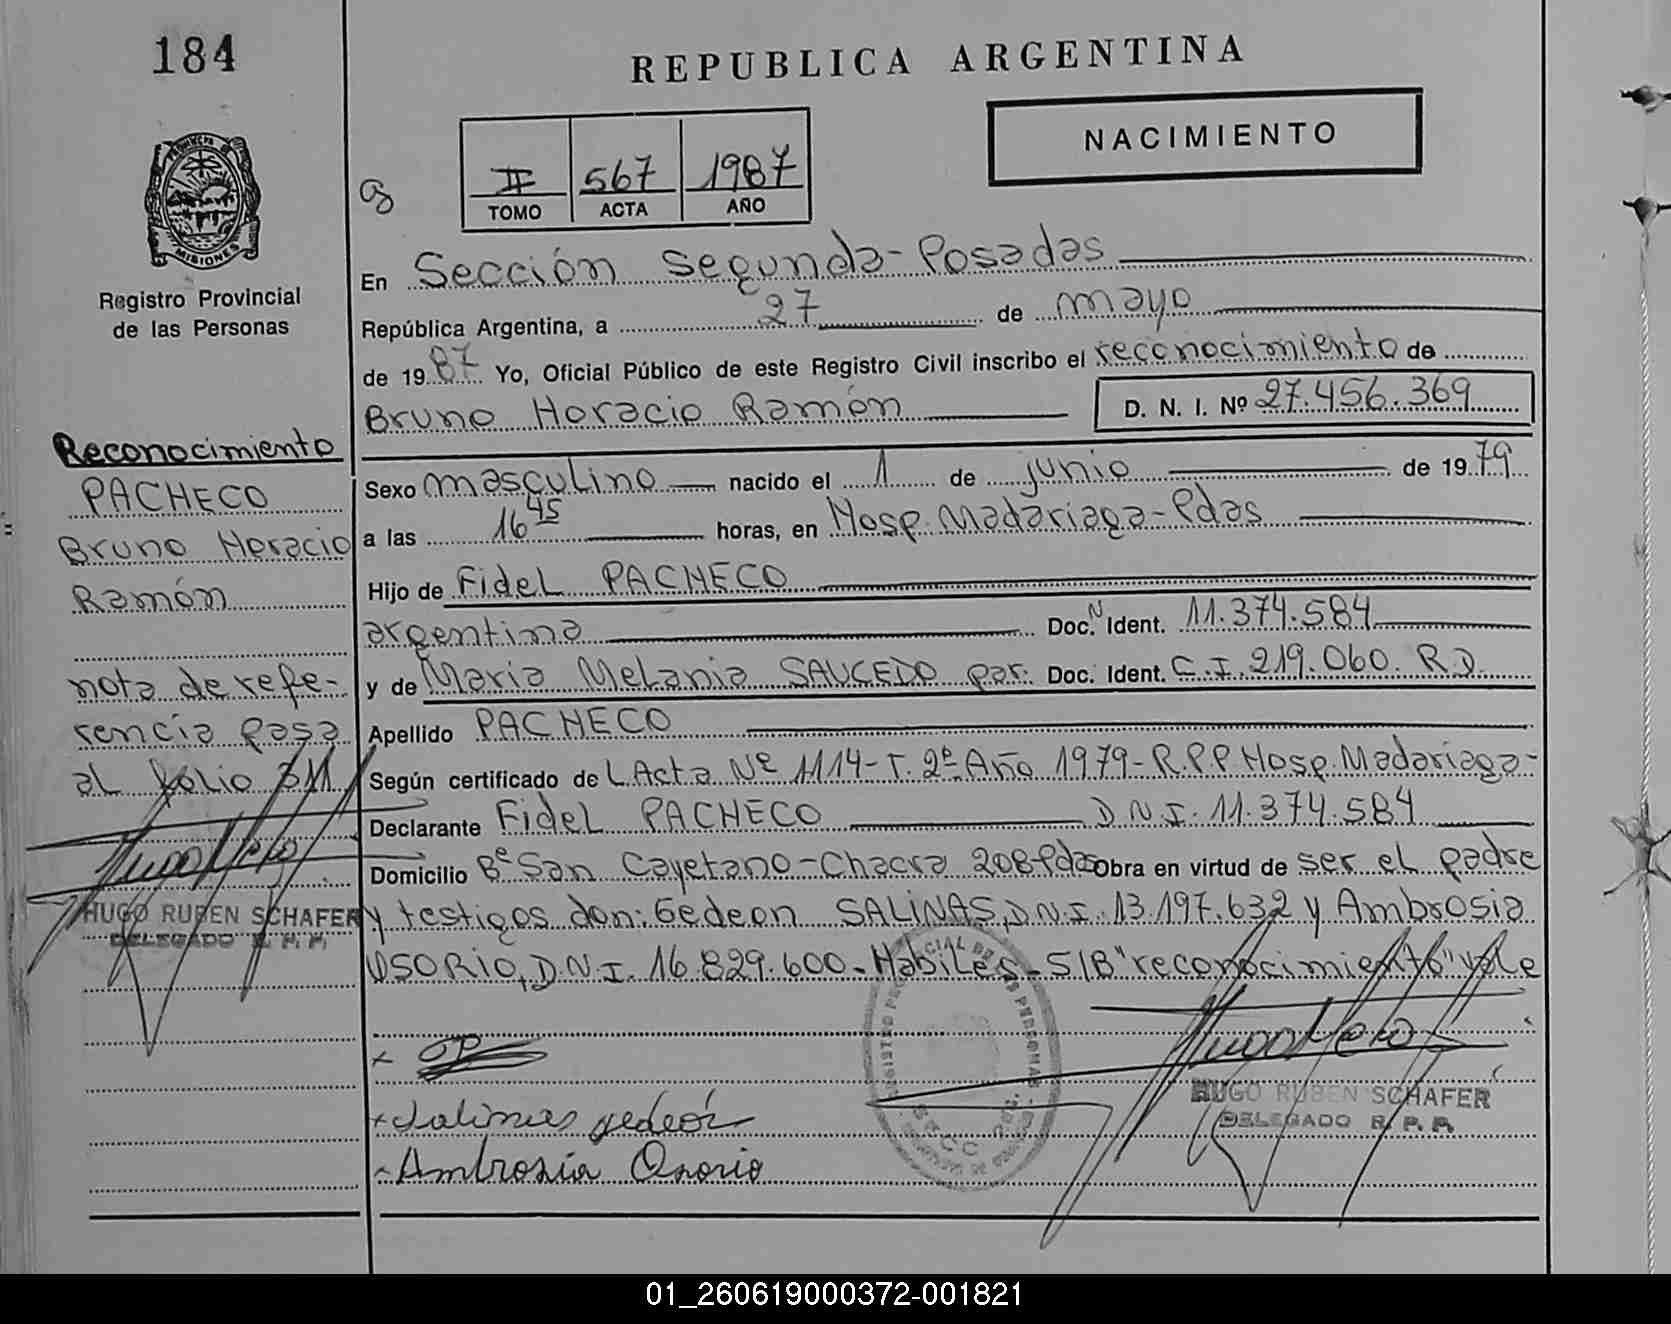 184
REPUBLICA ARGENTINA
NACIMIENTO
II 567 1987
TOMO ACTA AÑO
PROVINCIA DE MISIONES
Registro Provincial
de las Personas
En Sección Segunda-Posadas
República Argentina, a 27 de mayo
de 1987 Yo, Oficial Público de este Registro Civil inscribo el reconocimiento de
Bruno Horacio Ramón D. N. I. Nº 27.456.369
Reconocimiento
PACHECO
Bruno Horacio
Ramón
nota de refe-
rencia pasa
al folio 311
HUGO RUBEN SCHAFER
DELEGADO R. P. P.
Sexo masculino nacido el 1 de junio de 1979
a las 16 45 horas, en Hosp. Madariaga-Pdas
Hijo de Fidel PACHECO
argentina Doc. N Ident. 11.374.584
y de Maria Melania SAUCEDO par. Doc. Ident. C.I. 219.060. R.D.
Apellido PACHECO
Según certificado de L Acta Nº 1114-T. 2º Año 1979-R.P.P Hosp. Madariaga-
Declarante Fidel PACHECO D.N.I. 11.374.584
Domicilio Bº San Cayetano-Chacra 208-Pdas Obra en virtud de ser el padre
y testigos don: Gedeon SALINAS, D.N.I. 13.197.632 y Ambrosia
OSORIO, D.N.I. 16.829.600- Habiles- S/B "reconocimiento" vale
Salinas gedeón
Ambrosia Osorio
HUGO RUBEN SCHAFER
DELEGADO R. P. P.
01_260619000372-001821